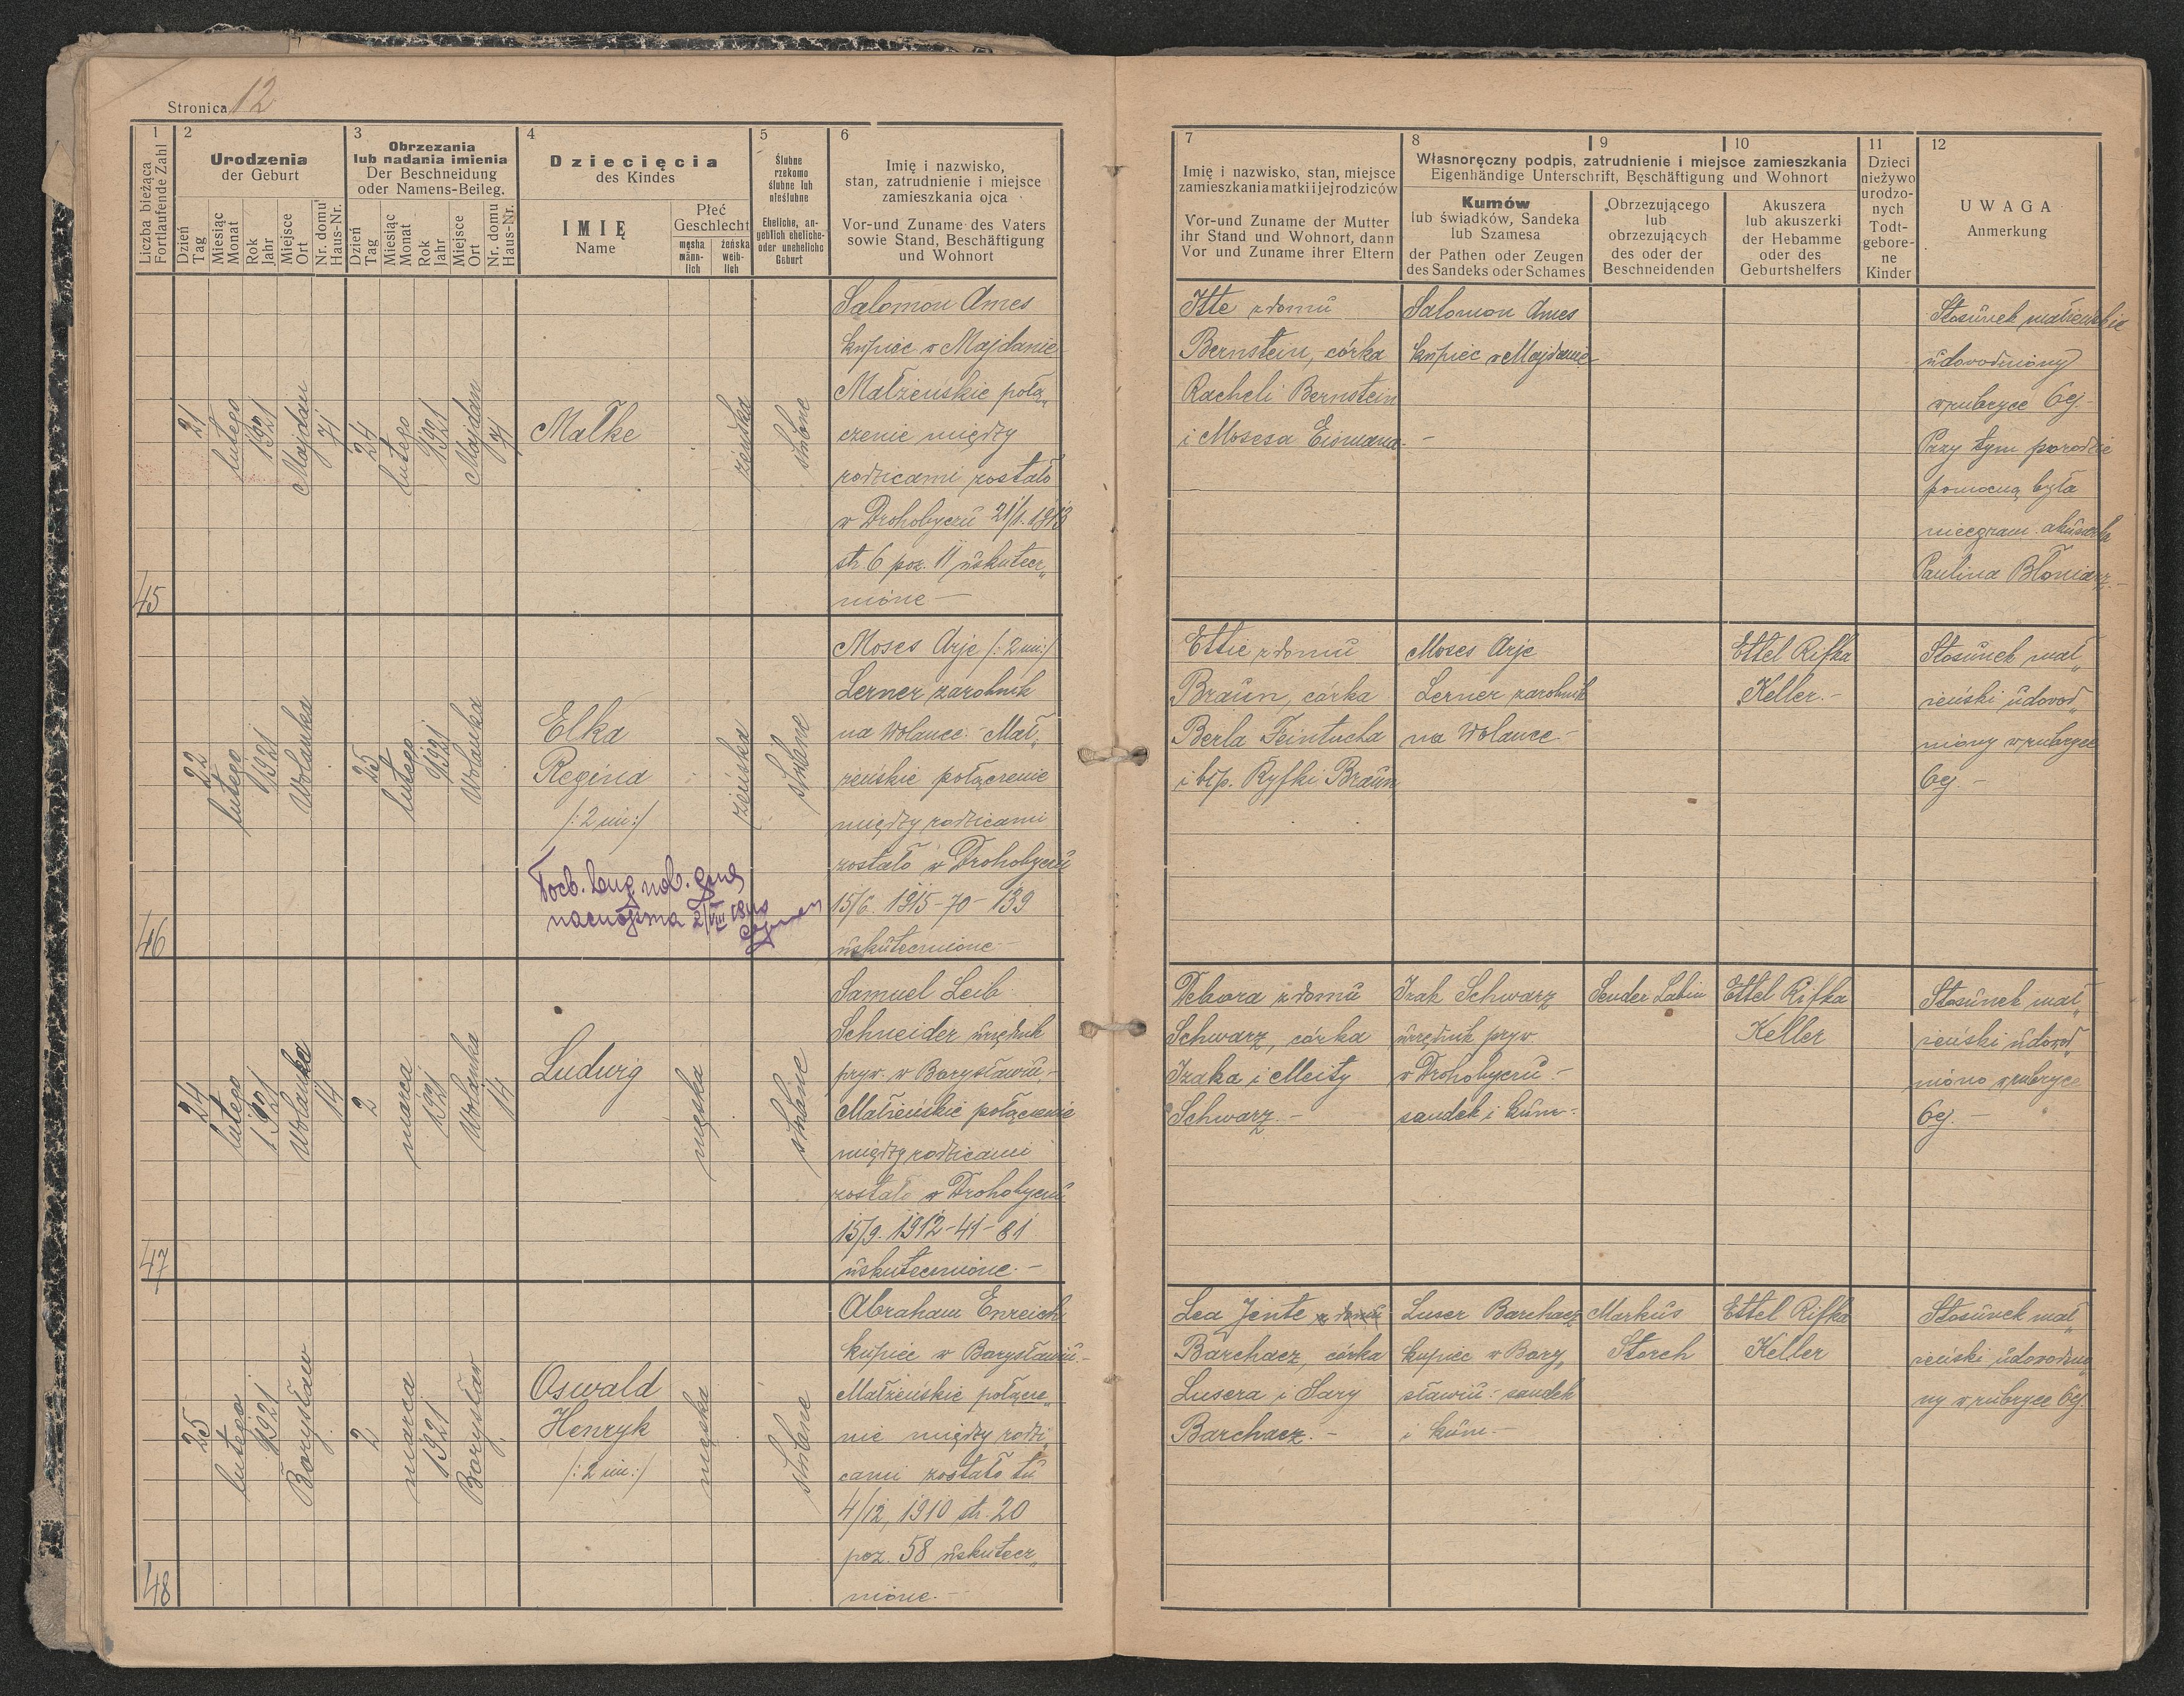 Stronica 12
1
Liczba bieżąca
Fortlaufende Zahl
2
Urodzenia
der Geburt
Dzień
Tag
Miesiąc
Monat
Rok
Jahr
Miejsce
Ort
Nr. domu
Haus-Nr.
3
Obrzezania
lub nadania imienia
Der Beschneidung
oder Namens-Beileg.
Dzień
Tag
Miesiąc
Monat
Rok
Jahr
Miejsce
Ort
Nr. domu
Haus-Nr.
4
Dziecięcia
des Kindes
IMIĘ
Name
Płeć
Geschlecht
męska
männ-
lich
żeńska
weib-
lich
5
Ślubne
rzekomo
ślubne lub
nieślubne
Eheliche, an-
geblich eheliche-
oder uneheliche
Geburt
6
Imię i nazwisko,
stan, zatrudnienie i miejsce
zamieszkania ojca
Vor-und Zuname des Vaters
sowie Stand, Beschäftigung
und Wohnort
7
Imię i nazwisko, stan, miejsce
zamieszkania matki i jej rodziców
Vor-und Zuname der Mutter
ihr Stand und Wohnort, dann
Vor und Zuname ihrer Eltern
8
9
10
Własnoręczny podpis, zatrudnienie i miejsce zamieszkania
Eigenhändige Unterschrift, Beschäftigung und Wohnort
Kumów
lub świadków, Sandeka
lub Szamesa
der Pathen oder Zeugen
des Sandeks oder Schames
Obrzezującego
lub
obrzezujących
des oder der
Beschneidenden
Akuszera
lub akuszerki
der Hebamme
oder des
Geburtshelfers
11
Dzieci
nieżywo
urodzo-
nych
Todt-
gebore-
ne
Kinder
12
UWAGA
Anmerkung
45
21
lutego
1921
Majdan
71
24
lutego
1921
Majdan
71
Malke
żeńska
ślubne
Salomon Ames
kupiec w Majdanie
Małżeńskie połą„
czenie między
rodzicami zostało
w Drohobyczu 21/1. 1913
str 6 poz. 11 uskutecz„
nione —
Itte z domu
Bernstein, córka
Racheli Bernstein
i Mosesa Eismana. -
Salomon Ames
kupiec w Majdanie
Stosunek małżeński
udowodniony
w rubryce 6ej.-
Przy tym porodzie
pomocną była
nieegzam. akuszerka
Paulina Błoniarz.-
46
22
lutego
1921
Wolanka
25
lutego
1921
Wolanka
Elka
Regina
/: 2 im:/
2/VIII
żeńska
ślubne
Moses Arje /: 2 im:/
Lerner zarobnik
na Wolance. Mał„
żeńskie połączenie
między rodzicami
zostało w Drohobyczu
15/6. 1915 - 70 - 139
uskutecznione.-
Ettie z domu
Braun, córka
Berla Feintucha
i bsp. Ryfki Braun
Moses Arje
Lerner zarobnik
na Wolance -
Ettel Rifka
Keller.-
Stosunek mał„
żeński udowod„
niony w rubryce
6ej. -
47
24
lutego
1921
Wolanka
14
2
marca
1921
Wolanka
14
Ludwig
męska
ślubne
Samuel Leib
Schneider urzędnik
pryw. w Borysławiu.-
Małżeńskie połączenie
między rodzicami
zostało w Drohobyczu
15/9. 1912 - 41 - 81
uskutecznione. -
Debora z domu
Schwarz, córka
Izaka i Meity
Schwarz. -
Izak Schwarz
urzędnik pryw.
w Drohobyczu.-
sandek i kum-
Sender Labin
Ettel Rifka
Keller
Stosunek mał„
żeński udowod„
niono w rubryce
6ej. -
48
25
lutego
1921
Borysław
2
marca
1921
Borysław
Oswald
Henryk
/: 2 im:/
męska
ślubne
Abraham Enreich
kupiec w Borysławiu.-
Małżeńskie połącze„
nie między rodzi„
cami zostało tu
4/12, 1910 str. 20
poz. 58 uskutecz„
nione.-
Lea Jente z domu
Barchacz, córka
Lusera i Sary
Barchacz. -
Luser Barchacz
kupiec w Bory„
sławiu.- sandek
i kum. -
Markus
Storch
Ettel Rifka
Keller
Stosunek mał„
żeński udowodnio„
ny w rubryce 6ej.